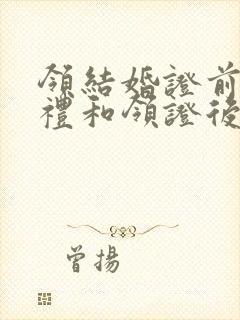 領結婚證前
禮和領證後
曾揚